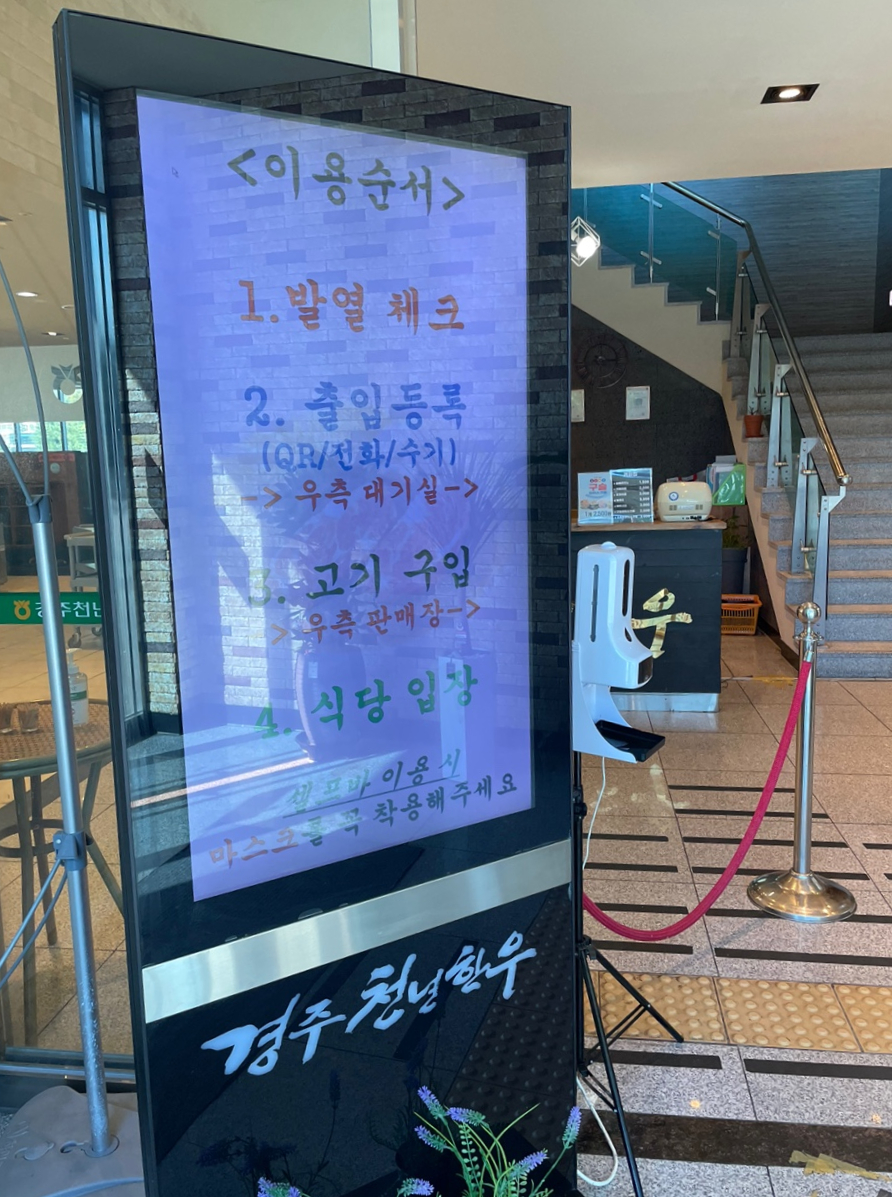 <이용순서>
1. 발열 체크
2. 출입등록
(QR/전화/수기)
-> 우측 대기실->
3. 고기 구입
-> 우측 판매장->
4. 식당 입장
셀프바 이용 시
마스크를 꼭 착용해주세요
경주 천년한우
경주천년
우